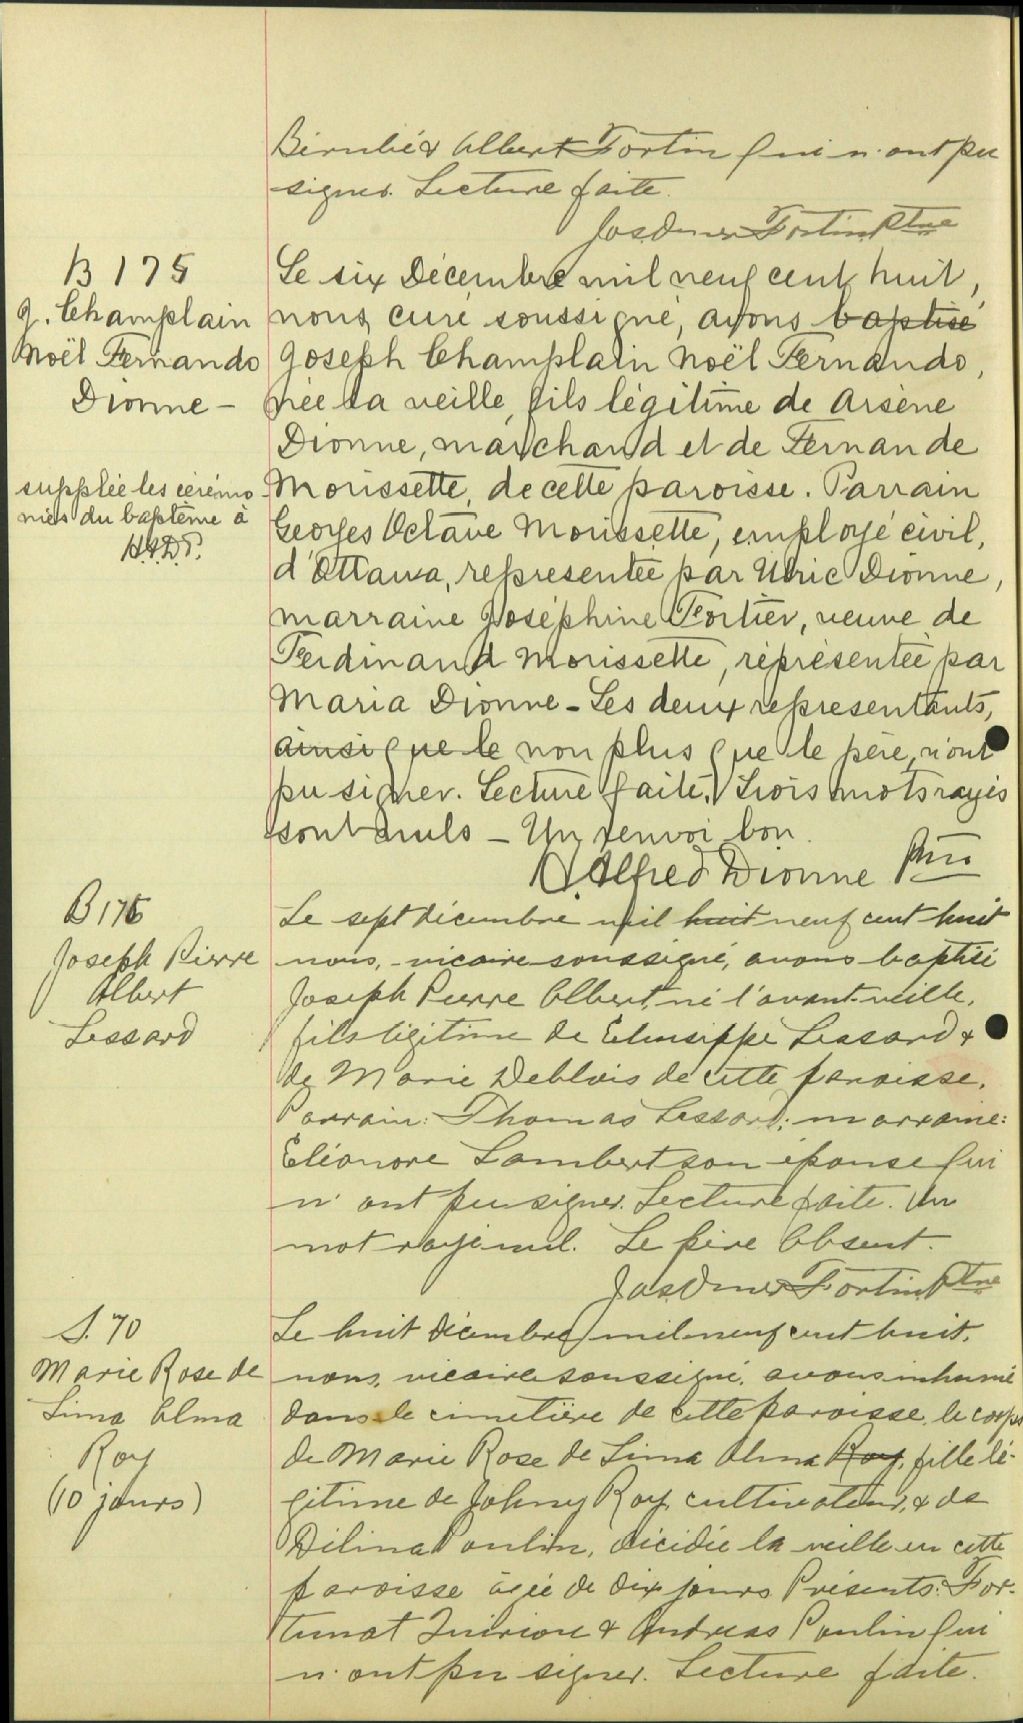 Bérubé & Albert Fortin qui n'ont pu
signer. Lecture faite.
Jos Omer Fortin Ptre
B 175
J. Champlain
Noël Fernando
Dionne -
supplée les cérémo
nies du baptême à
H.A.D.P.
Le six Décembre mil neuf cent huit,
nous, curé soussigné, avons baptisé
Joseph Champlain Noël Fernando,
née la veille, fils légitime de Arsène
Dionne, marchand et de Fernande
Morissette, de cette paroisse. Parrain
Georges Octave Morissette, employé civil,
d'Ottawa, représentée par Ulric Dionne,
marraine Joséphine Fortier, veuve de
Ferdinand Morissette, représentée par
Maria Dionne - Les deux représentants,
ainsi que le non plus que le père, n'ont
pu signer. Lecture faite. Trois mots rayés
sont nuls - Un renvoi bon.
Alfred Dionne Ptre
B 176
Joseph Pierre
Albert
Lessard
Le sept décembre mil huit neuf cent huit
nous, vicaire soussigné, avons baptisé
Joseph Pierre Albert, né l'avant-veille,
fils légitime de Eleusippe Lessard &
de Marie Deblois de cette paroisse.
Parrain: Thomas Lessard; marraine:
Eléonore Lambert son épouse qui
n'ont pu signer. Lecture faite. Un
mot rayé nul. Le père absent.
Jos Omer Fortin Ptre
S. 70
Marie Rose de
Lima Alma
Roy
(10 jours)
Le huit décembre mil neuf cent huit,
nous, vicaire soussigné, avons inhumé
dans le cimetière de cette paroisse, le corps
de Marie Rose de Lima Alma Roy, fille lé-
gitime de Johny Roy, cultivateur, & de
Délina Poulin, décédée la veille en cette
paroisse âgée de dix jours Présents: For-
tunat Quirion & Andreas Poulin qui
n'ont pu signer. Lecture faite.